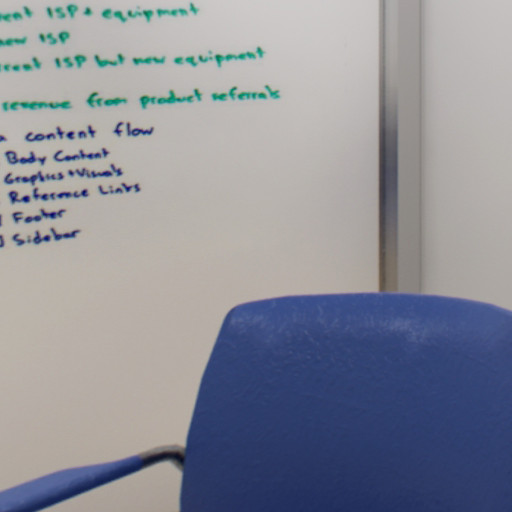 rent ISP + equipment
new ISP
rrent ISP but new equipment
revenue from product referrals
a content flow
Body Content
Graphics + Visuals
Reference Links
Footer
Sidebar